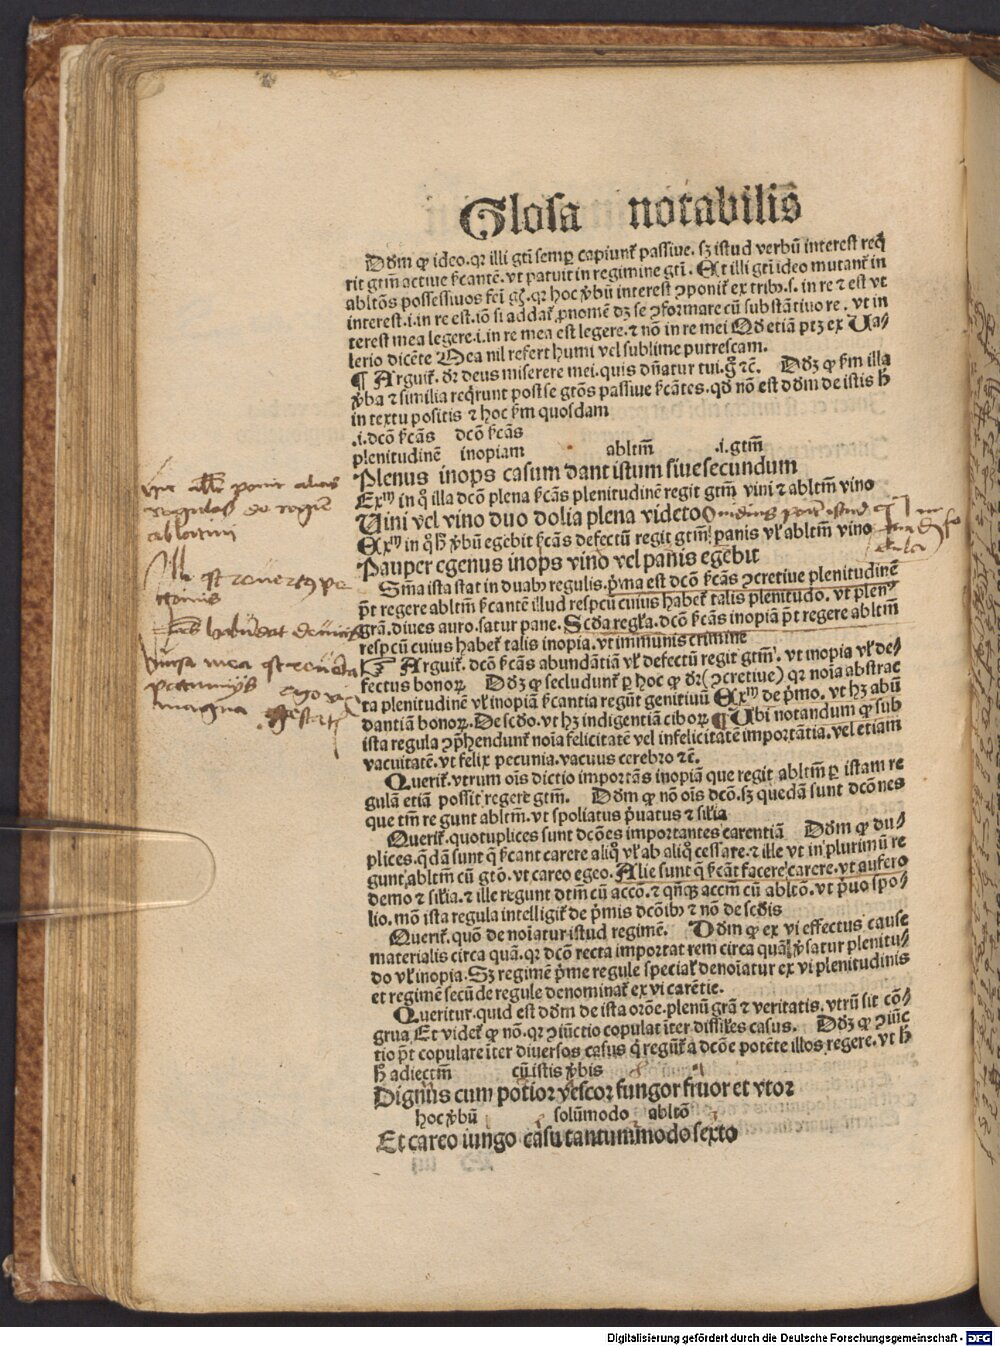 Glosa notabilis
Dd̄m ꝙ ideo.qꝛ illi gt̄i semꝑ capiunt᷑ passiue. sꝫ istud verbū interest req̄
rit gtm̄ actiue ſ̄cantē.vt patuit in regimine gt̄i. Et illi gt̄i ideo mutant᷑ in
abltōs possessiuos
interest.i.in re est.iō si addat᷑ ꝓnomē dꝫ se ꝯformare cū substātiuo re. vt in
terest mea legere.i.in re mea est legere.⁊ nō in re mei Qd̄ etiā ptꝫ ex Va⸗
lerio dicēte Mea nil refert humi vel sublime putrescam.
¶ Arguit᷑. dꝛ deus miserere mei.quis dn̄atur tui.gͦ ⁊c̄. Dd̄ꝫ ꝙ ẜm illa
ꝟba ⁊ similia reqͥrunt post se gtōs passiue ſ̄cātes.qd̄ nō est dd̄m de istis h̄
in textu positis ⁊ hoc ẜm quosdam
.i.dcō ſ̄cās dcō ſ̄cās
plenitudinē inopiam abltm̄ .i.gtm̄
Plenus inops casum dant istum siue secundum
Exᵐ in qͦ illa dcō plena ſ̄cās plenitudinē regit gtm̄ vini ⁊ abltm̄ vino
Uini vel vino duo dolia plena videto
Exᵐ in qͦ h̄ ꝟbū egebit ſ̄cās defectū regit gtm̄ panis vl᷑ abltm̄ vino
Pauper egenus inops vino vel panis egebit
Sm̄a ista stat in duabꝫ regulis.pͥma est dcō ſ̄cās ꝯcretiue plenitudinē
pt̄ regere abltm̄ ſ̄cantē illud respcū cuius habet᷑ talis plenitudo. vt plen⸗
grā.diues auro.satur pane. Scd̄a regl̄a.dcō ſ̄cās inopiā pt̄ regere abltm̄
respcū cuius habet᷑ talis inopia.vt immunis crimine
Arguit᷑.dcō ſ̄cās abundātiā vl᷑ defectū regit gtm̄. vt inopia vl᷑ de⸗
fectus bonoꝝ. Dd̄ꝫ ꝙ secludunt᷑ ꝑ hoc ꝙ dꝛ (ꝯcretiue) qꝛ noīa abstrac
ta plenitudinē vl᷑ inopiā ſ̄cantia regūt genitiuū Exᵐ de pͥmo. vt hꝫ abū
dantiā bonoꝝ. De scd̄o. vt hꝫ indigentiā ciboꝝ ¶ Ubi notandum ꝙ sub
ista regula ꝯp̄hendunt᷑ noīa felicitatē vel infelicitatē importātia.vel etiam
vacuitatē.vt felix pecunia.vacuus cerebro ⁊c̄.
Querit᷑.vtrum oīs dictio importās inopiā que regit abltm̄ ꝑ istam re
gulā etiā possit regere gtm̄. Dd̄m ꝙ nō oīs dcō.sꝫ quedā sunt dcōnes
que tm̄ regunt abltm̄. vt spoliatus pͥuatus ⁊ sil᷑ia
Querit᷑.quotuplices sunt dcōēs importantes carentiā Dd̄m ꝙ du⸗
plices.qͣdā sunt q̄ ſ̄cant carere aliqͦ vl᷑ ab aliqͦ cessare.⁊ ille vt in plurimū re
gunt abltm̄ cū gtō. vt careo egeo. Alie sunt q̄ ſ̄cāt facere carere.vt aufero
demo ⁊ sil᷑ia.⁊ ille regunt dtm̄ cū accō.⁊ qn̄qꝫ accm̄ cū abltō. vt pͥuo spo⸗
lio. mō ista regula intelligit᷑ de pͥmis dcōibꝫ ⁊ nō de scd̄is
Querit᷑. quō de noīatur istud regimē. Dd̄m ꝙ ex vi effectus cause
materialis circa quā.qꝛ dcō recta importat rem circa quā ꝟsatur plenitu⸗
do vl᷑ inopia. Sꝫ regimē pͥme regule specialr̄ denoīatur ex vi plenitudinis
et regimē secūde regule denominat᷑ ex vi carētie.
Queritur.quid est dd̄m de ista orōe.plenū grā ⁊ veritatis.vtrū sit cō⸗
grua Et videt᷑ ꝙ nō.qꝛ ꝯiūctio copulat īter dissil᷑es casus. Dd̄ꝫ ꝙ ꝯiūc
tio pt̄ copulare īter diuersos casus qͥ regūt᷑ a dcōe potēte illos regere.vt h̄
h̄ adiectm̄ cū istis ꝟbis
Dignus cum potior vescor fungor fruor et vtor
hoc ꝟbū solūmodo abltō
Et careo iungo casu tantummodo sexto
Digitalisierung gefördert durch die Deutsche Forschungsgemeinschaft - DFG